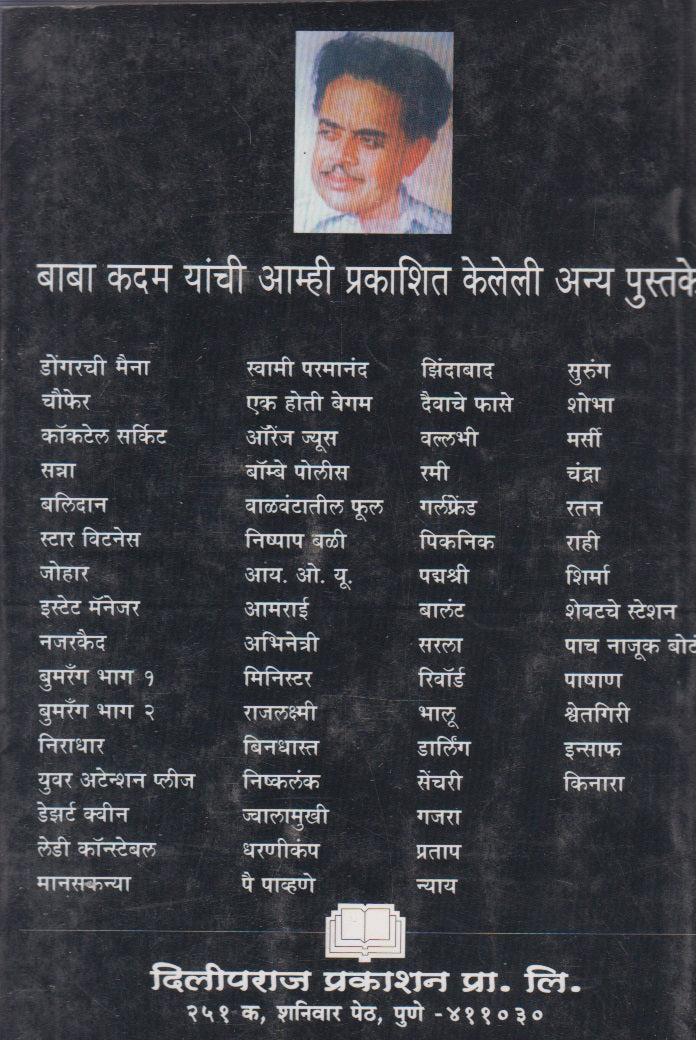 बाबा कदम यांची आम्ही प्रकाशित केलेली अन्य पुस्तके
डोंगरची मैना
चौफेर
कॉकटेल सर्किट
सन्ना
बलिदान
स्टार विटनेस
जोहार
इस्टेट मॅनेजर
नजरकैद
बुमरँग भाग १
बुमरँग भाग २
निराधार
युवर अटेन्शन प्लीज
डेझर्ट क्वीन
लेडी कॉन्स्टेबल
मानसकन्या
स्वामी परमानंद
एक होती बेगम
ऑरेंज ज्यूस
बॉम्बे पोलीस
वाळवंटातील फूल
निष्पाप बळी
आय. ओ. यू.
आमराई
अभिनेत्री
मिनिस्टर
राजलक्ष्मी
बिनधास्त
निष्कलंक
ज्वालामुखी
धरणीकंप
पै पाव्हणे
झिंदाबाद
दैवाचे फासे
वल्लभी
रमी
गर्लफ्रेंड
पिकनिक
पद्मश्री
बालंट
सरला
रिवॉर्ड
भालू
डार्लिंग
सेंचरी
गजरा
प्रताप
न्याय
सुरुंग
शोभा
मर्सी
चंद्रा
रतन
राही
शिर्मा
शेवटचे स्टेशन
पाच नाजूक
पाषाण
श्वेतगिरी
इन्साफ
किनारा
दिलीपराज प्रकाशन प्रा. लि.
२५१ क, शनिवार पेठ, पुणे -४११०३०